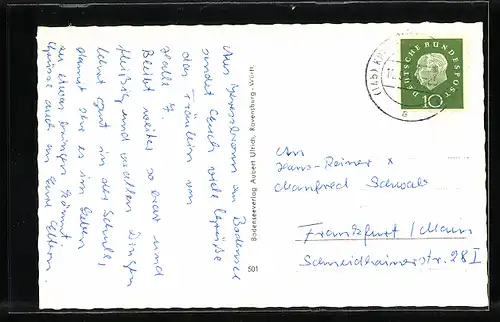 Aus Kressbronn am Bodensee
sendet Euch viele Grüsse
das Fräulein von
Halle 7.
Bleibt weiter so brav und
fleißig und vor allen Dingen
lernt gut in der Schule,
damit Ihr es im Leben
zu etwas bringen könnt.
Grüsse auch an Eure Eltern.
Bodenseeverlag Aubert Ulrich, Ravensburg-Württ.
501
DEUTSCHE BUNDESPOST
10
a
An
Hans-Reiner x
Manfred Schwab
Frankfurt / Main
Schneidhainerstr. 28 I